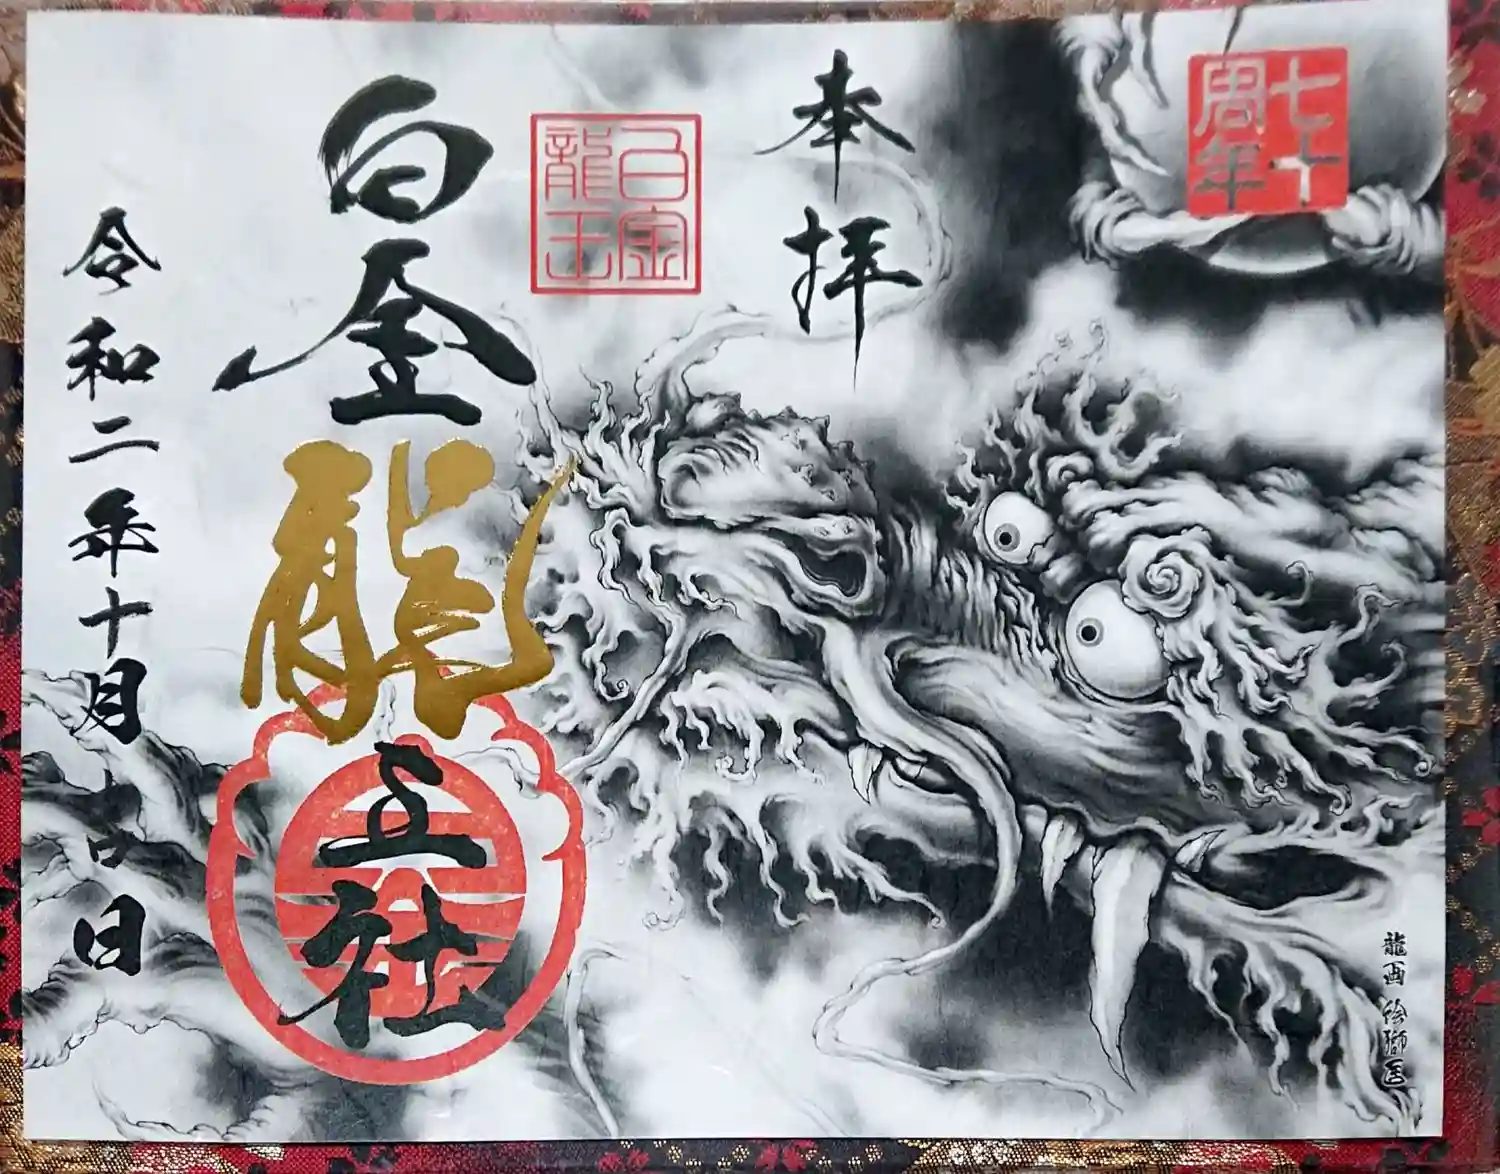 七十
周年
龍画 絵獅
奉拝
白金
龍王
白金龍王社
令和二年十月 日